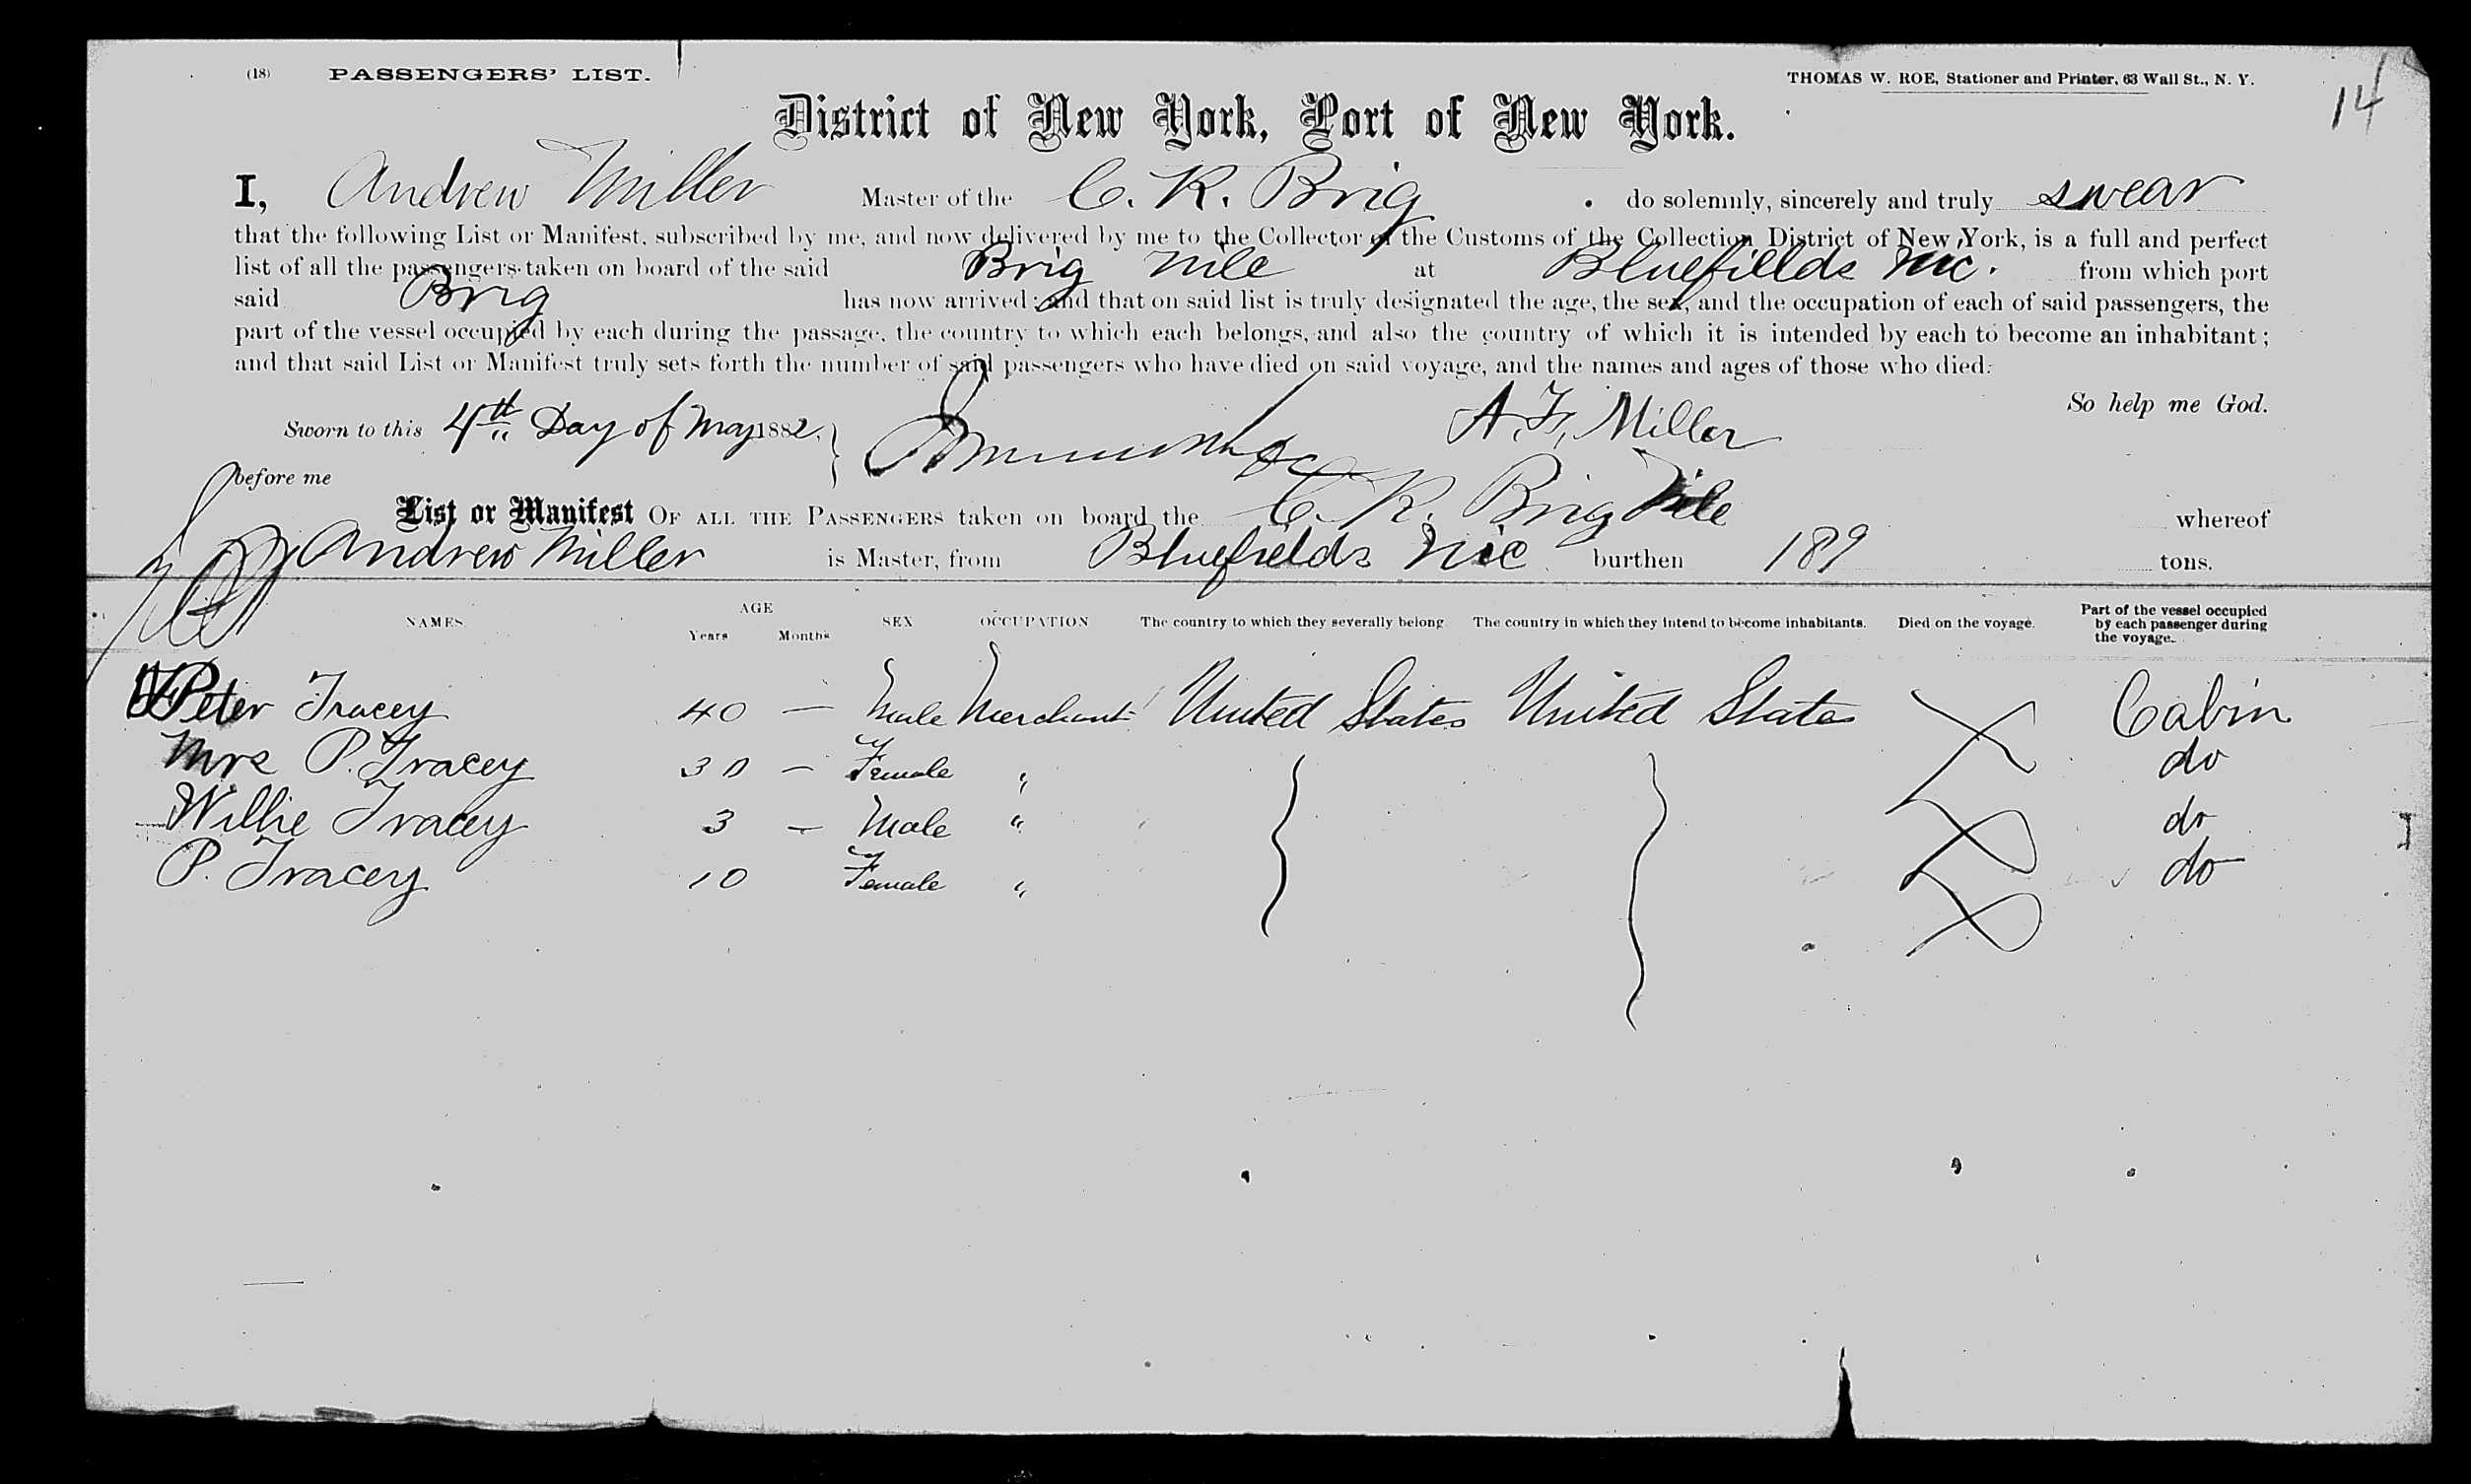 (18) PASSENGERS' LIST. THOMAS W. ROE, Stationer and Printer, 63 Wall St., N. Y.
14
District of New York, Port of New York.
I, Andrew Miller Master of the C. R. Brig do solemnly, sincerely and truly swear
that the following List or Manifest, subscribed by me, and now delivered by me to the Collector of the Customs of the Collection District of New York, is a full and perfect
list of all the passengers taken on board of the said Brig Nile at Bluefields Nic. from which port
said Brig has now arrived; and that on said list is truly designated the age, the sex, and the occupation of each of said passengers, the
part of the vessel occupied by each during the passage, the country to which each belongs, and also the country of which it is intended by each to become an inhabitant;
and that said List or Manifest truly sets forth the number of said passengers who have died on said voyage, and the names and ages of those who died.
So help me God.
Sworn to this 4th Day of May 1882, A. F. Miller
before me
List or Manifest OF ALL THE PASSENGERS taken on board the C. R. Brig Nile whereof
Andrew Miller is Master, from Bluefields Nic burthen 189 tons.
NAMES AGE Years Months SEX OCCUPATION The country to which they severally belong The country in which they intend to become inhabitants. Died on the voyage. Part of the vessel occupied by each passenger during the voyage.
Peter Tracey 40 — Male Merchant United States United States Cabin
Mrs P. Tracey 30 — Female " do
Willie Tracey 3 — Male " do
P. Tracey 10 Female " do